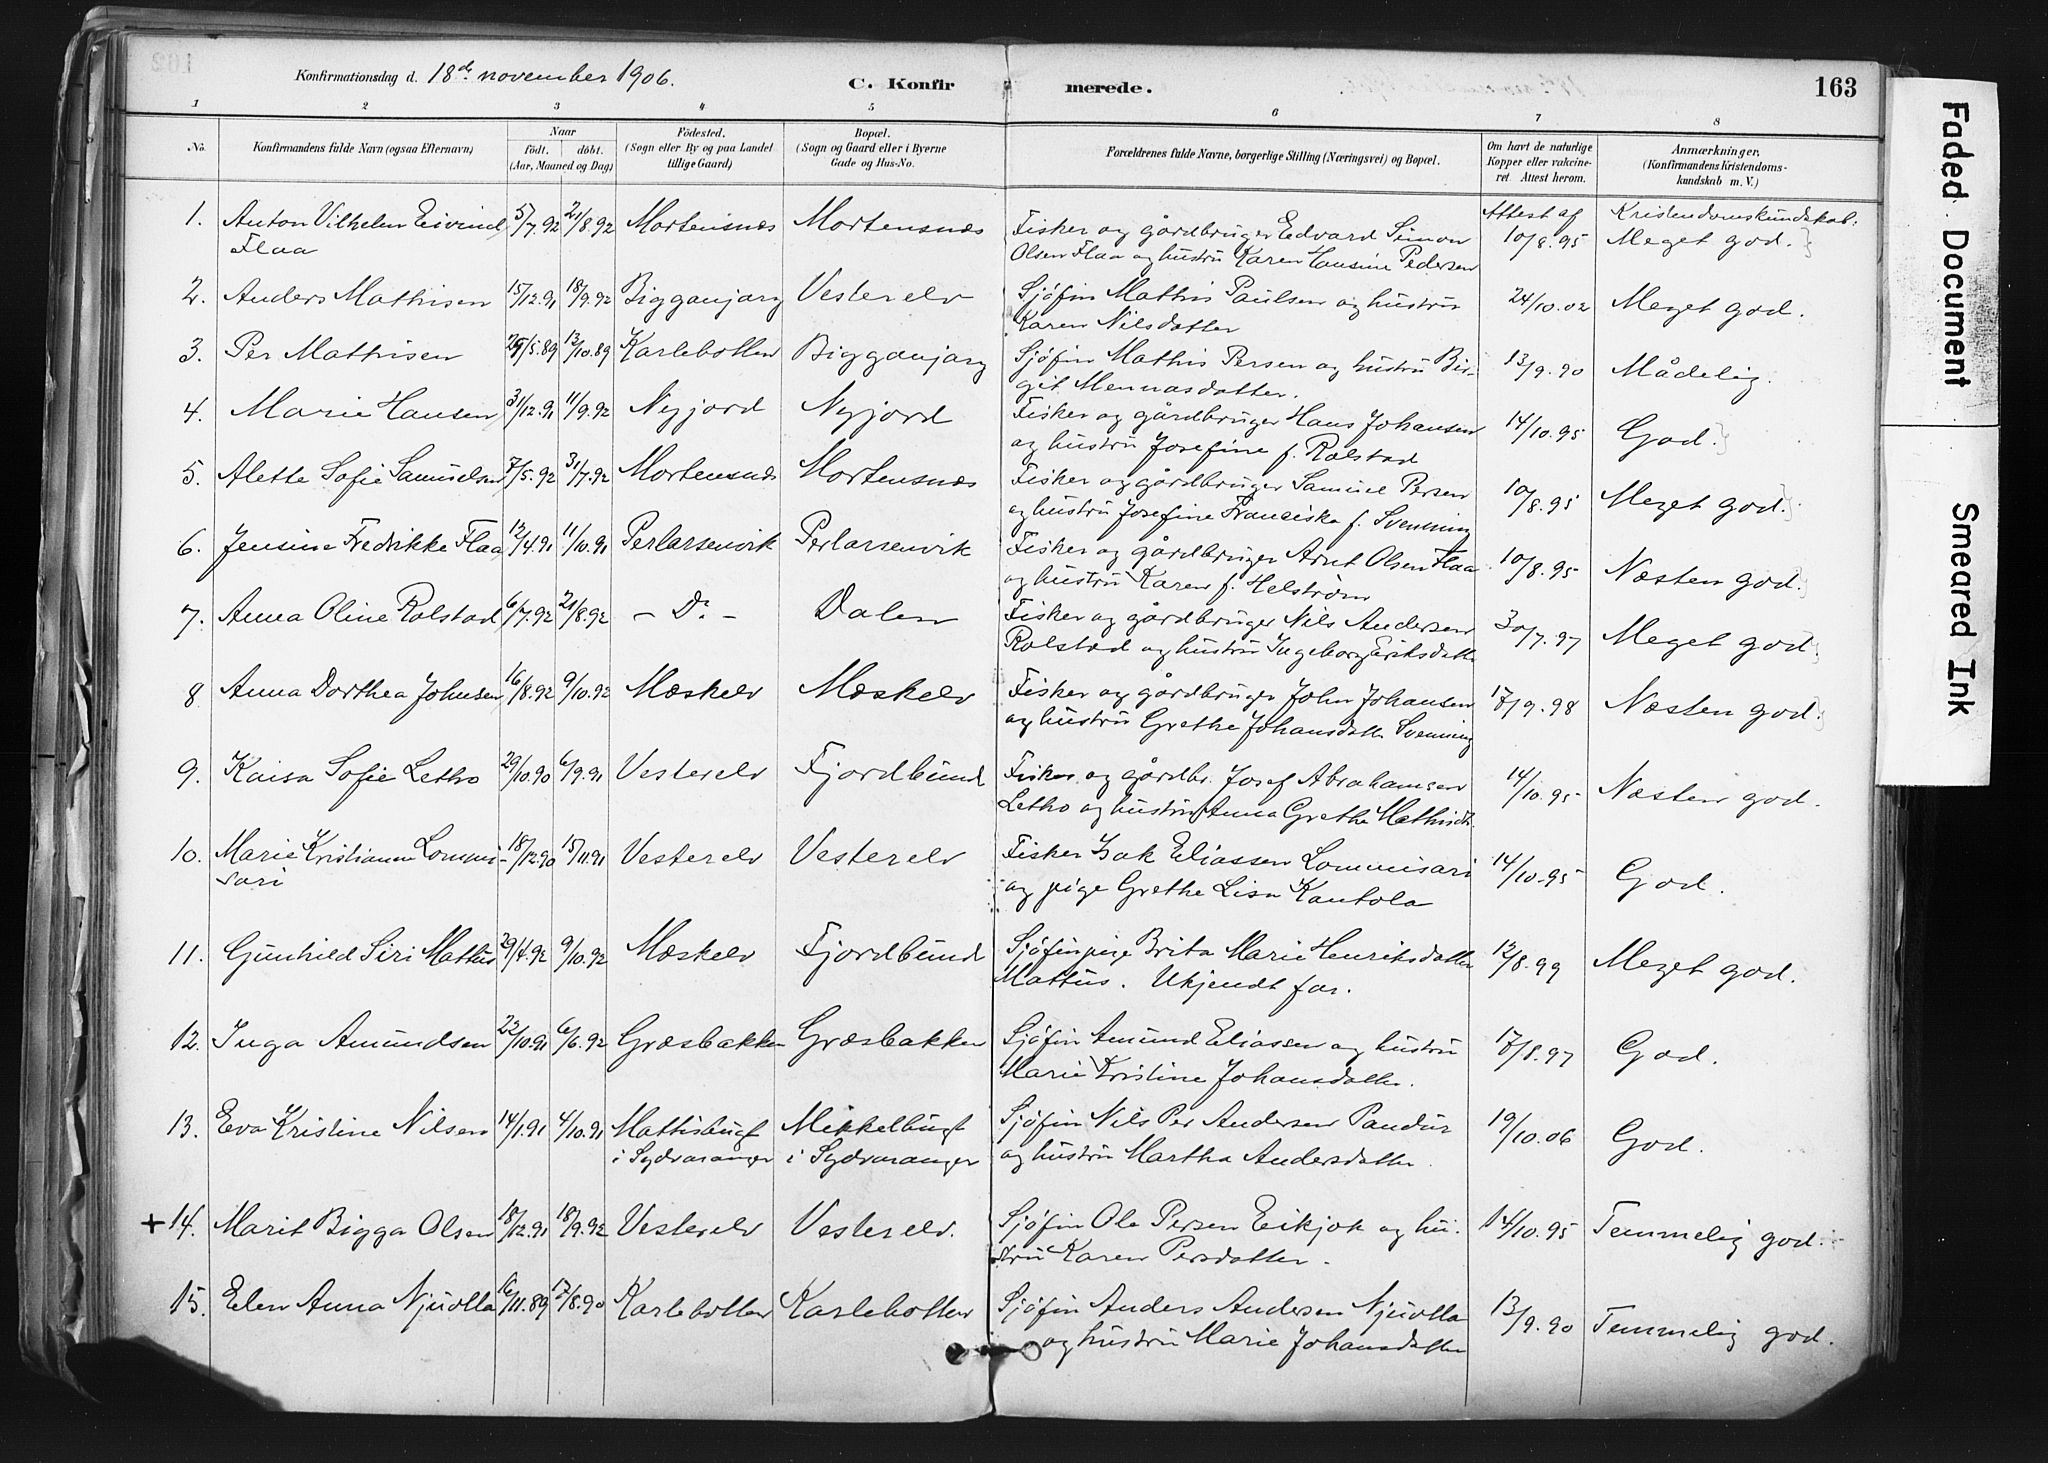 163
Konfirmationsdag d. 18de november 1906.
C. Konfirmerede.
1 2 3 4 5 6 7 8
No.
Konfirmandens fulde Navn (ogsaa Efternavn)
Naar
födt. döbt.
(Aar, Maaned og Dag)
Födested.
(Sogn eller By og paa Landet
tillige Gaard)
Bopæl.
(Sogn og Gaard eller i Byerne
Gade og Hus-No.
Forældrenes fulde Navne, borgerlige Stilling (Næringsvei) og Bopæl.
Om havt de naturlige
Kopper eller vakcine-
ret. Attest herom.
Anmærkninger,
(Konfirmandens Kristendoms-
kundskab m. V.)
1. Anton Vilhelm Eivind 5/7.92 21/8.92 Mortensnæs Mortensnæs Fisker og gårdbruger Edvard Simon Attest af 10/8.95 Kristendomskundskab: Meget god.
Flaa Olsen Flaa og hustru Karen Hansine Pedersen
2. Anders Mathisen 15/12.91 18/9.92 Bigganjarg Vesterelv Sjöfin Mathis Paulsen og hustru 24/10.02 Meget god.
Karen Nilsdatter
3. Per Mathisen 25/5.89 13/10.89 Karlebotten Bigganjarg Sjöfin Mathis Persen og hustru Bir- 13/9.90 Mådelig.
git Mennasdatter.
4. Marie Hansen 31/12.91 11/9.92 Nyjord Nyjord Fisker og gårdbruger Hans Johansen 14/10.95 God.
og hustru Josefine f. Rolstad
5. Alette Sofie Samuelsen 7/5.92 31/7.92 Mortensnæs Mortensnæs Fisker og gårdbruger Samuel Persen 10/8.95 Meget god.
og hustru Josefine Franciska f. Svenning
6. Jensine Fredrikke Flaa 12/4.91 11/10.91 Perlarsenvik Perlarsenvik Fisker og gårdbruger Arnt Olsen Flaa 10/8.95 Næsten god.
og hustru Karen f. Helström
7. Anna Oline Rolstad 6/7.92 21/8.92 - Do - Dalen Fisker og gårdbruger Nils Andersen 30/7.97 Meget god
Rolstad og hustru Ingeborg Eriksdatter
8 Anna Dorthea Johnsen 16/8.92 9/10.92 Mæskelv Mæskelv Fisker og gårdbruger John Johansen 17/9.98 Næsten god.
og hustru Grethe Johansdatter Svenning
9. Kaisa Sofie Letho 29/10.90 6/9.91 Vesterelv Fjordbund Fisker og gårdbr. Josef Abrahamsen 14/10.95 Næsten god.
Letho og hustru Anna Grethe Mathisdt.
10. Marie Kristianne Lommi- 18/12.90 15/11.91 Vesterelv Vesterelv Fisker Isak Eliassen Lommisari 14/10.95 God.
sari og pige Grethe Lisa Kantola
11. Gunhild Siri Mattus 29/4.92 9/10.92 Mæskelv Fjordbund Sjöfinpige Brita Marie Henriksdatter 12/8.99 Meget god.
Mattus. Ukjendt far.
12. Inga Amundsen 22/10.91 6/6.92 Græsbakken Græsbakken Sjöfin Amund Eliassen og hustru 17/8.97 God.
Marie Kristine Johansdatter.
13. Eva Kristine Nilsen 14/1.91 4/10.91 Mattisbugt Mikkelbugt Sjöfin Nils Per Andersen Pandur 19/10.06 God.
i Sydvaranger i Sydvaranger og hustru Martha Andersdatter.
+14. Marit Bigga Olsen 18/12.91 18/9.92 Vesterelv Vesterelv. Sjöfin Ole Persen Eikjok og hu- 14/10.95 Temmelig god.
stru Karen Persdatter.
15. Elen Anna Njuolla 16/11.89 17/8.90 Karlebotten Karlebotten Sjöfin Anders Andersen Njuolla 13/9.90 Temmelig god.
og hustru Marie Johansdatter
Faded Document
Smeared Ink